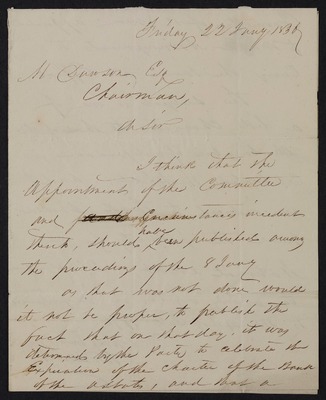 Friday 22 Jany 1836
M Dawson Esq
Chairman,
Dr Sir
I think that the
Appointment of the Committee
and Circumstances incident
thereto, should have been published among
the proceedings of the 8 Jany
as that was not done would
it not be proper, to publish the
fact that on that day it was
determined by the Party to celebrate the
Expiration of the Charter of the Bank
of the U States, and that a